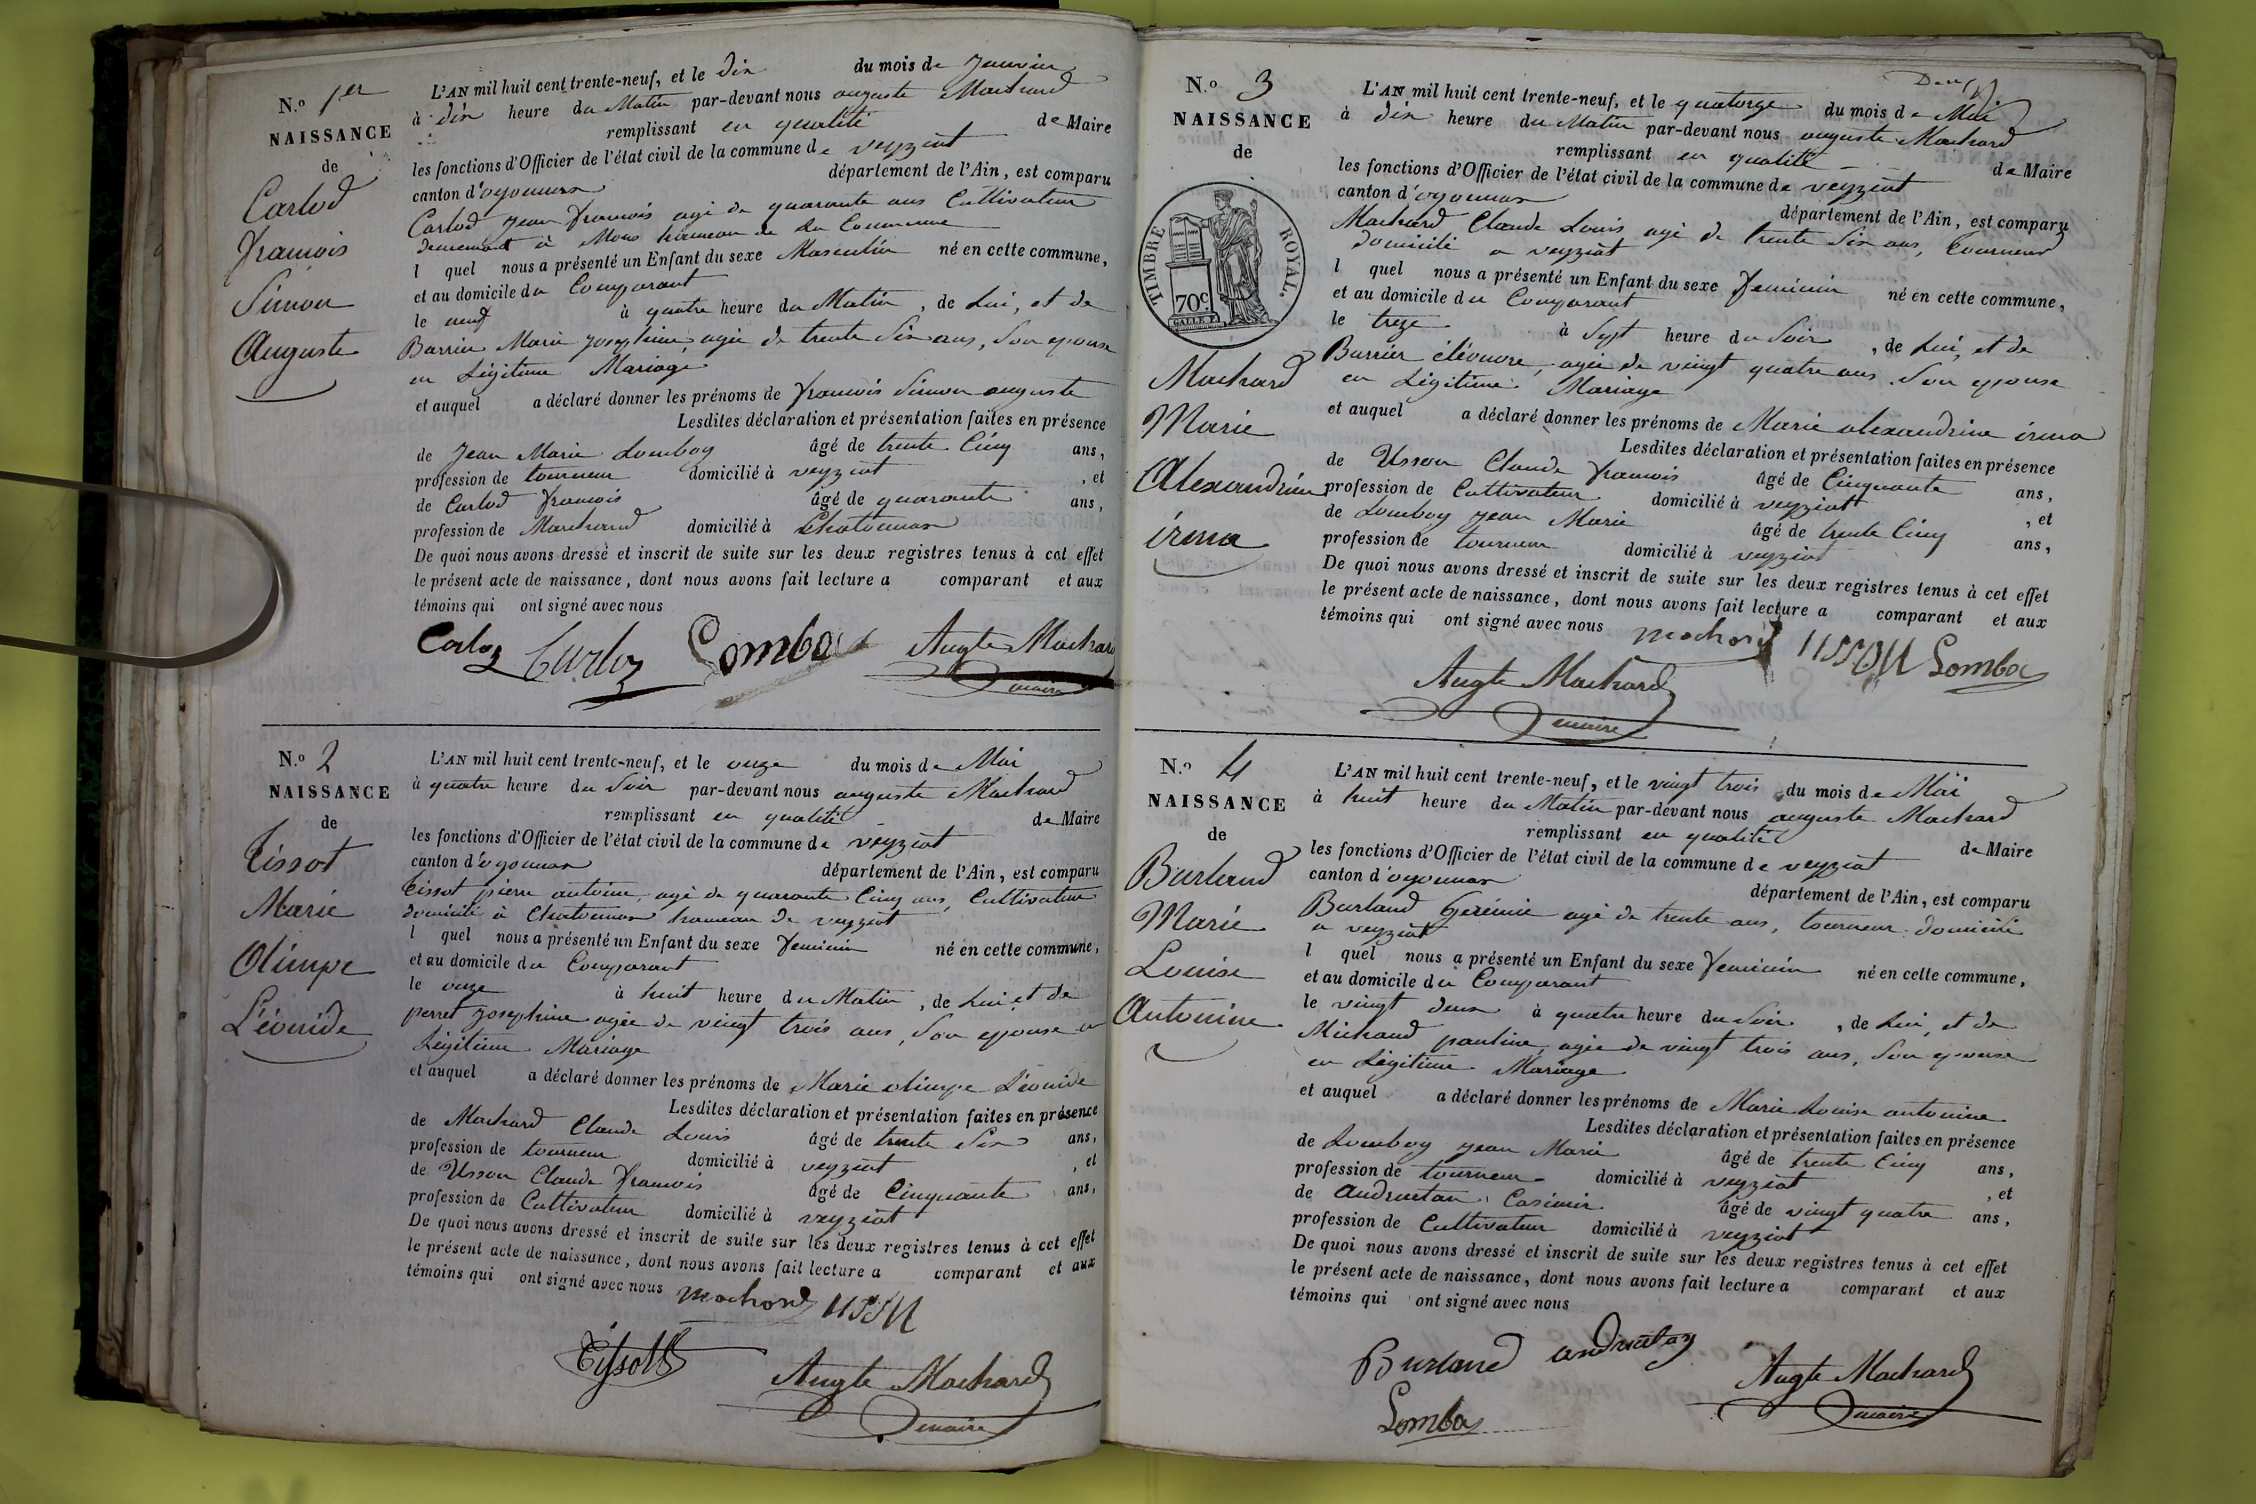 N.o 1er
NAISSANCE
de
Carlod
francois
Simon
Auguste
L'AN mil huit cent trente-neuf, et le dix du mois de Janvier
à dix heure du Matin par-devant nous auguste Machard
remplissant en qualité de Maire
les fonctions d'Officier de l'état civil de la commune de veyziat
canton d'oyonnax département de l'Ain, est comparu
Carlod jean francois agé de quarante ans Cultivateur
demeurant à Mons hameau de la Commune
l quel nous a présenté un Enfant du sexe Masculin né en cette commune,
et au domicile du Comparant
le neuf à quatre heure du Matin, de Lui, et de
Barrier Marie josephine, agée de trente Six ans, Son epouse
en Légitime Mariage
et auquel a déclaré donner les prénoms de francois Simon auguste
Lesdites déclaration et présentation faites en présence
de Jean Marie Lomboy âgé de trente Cinq ans,
profession de tourneur domicilié à veyziat, et
de Carlod francois âgé de quarante ans,
profession de Marchand domicilié à Chatonnax
De quoi nous avons dressé et inscrit de suite sur les deux registres tenus à cet effet
le présent acte de naissance, dont nous avons fait lecture a comparant et aux
témoins qui ont signé avec nous
Carloz Carloz Lomboy Augte Machard
maire
N.o 2
NAISSANCE
de
Tissot
Marie
Olimpe
Léonide
L'AN mil huit cent trente-neuf, et le onze du mois de Mai
à quatre heure du Soir par-devant nous auguste Machard
remplissant en qualité de Maire
les fonctions d'Officier de l'état civil de la commune de veyziat
canton d'oyonnax département de l'Ain, est comparu
tissot pierre antoine, agé de quarante Cinq ans, Cultivateur
domicilié à Chatonnax hameau de veyziat
l quel nous a présenté un Enfant du sexe feminin né en cette commune,
et au domicile du Comparant
le onze à huit heure du Matin, de Lui, et de
perret josephine agée de vingt trois ans, Son epouse en
Légitime Mariage
et auquel a déclaré donner les prénoms de Marie olimpe Léonide
Lesdites déclaration et présentation faites en présence
de Machard Claude Louis âgé de trente Six ans,
profession de tourneur domicilié à veyziat, et
de Usson Claude francois âgé de Cinquante ans,
profession de Cultivateur domicilié à veyziat
De quoi nous avons dressé et inscrit de suite sur les deux registres tenus à cet effet
le présent acte de naissance, dont nous avons fait lecture a comparant et aux
témoins qui ont signé avec nous machard
Tissot Augte Machard
maire
N.o 3
NAISSANCE
de
TIMBRE ROYAL.
70c.
Machard
Marie
Alexandrine
irma
L'AN mil huit cent trente-neuf, et le quatorze du mois de Mai
à dix heure du Matin par-devant nous auguste Machard
remplissant en qualité de Maire
les fonctions d'Officier de l'état civil de la commune de veyziat
canton d'oyonnax département de l'Ain, est comparu
Machard Claude Louis agé de trente Six ans, tourneur
domicilié a veyziat
l quel nous a présenté un Enfant du sexe feminin né en cette commune,
et au domicile du Comparant
le treze à Sept heure du Soir, de Lui, et de
Barrier éléonore, agée de vingt quatre ans. Son epouse
en Légitime Mariage
et auquel a déclaré donner les prénoms de Marie alexandrine irma
Lesdites déclaration et présentation faites en présence
de Usson Claude francois âgé de Cinquante ans,
profession de Cultivateur domicilié à veyziat, et
de Lomboy jean Marie âgé de trente Cinq ans,
profession de tourneur domicilié à veyziat
De quoi nous avons dressé et inscrit de suite sur les deux registres tenus à cet effet
le présent acte de naissance, dont nous avons fait lecture a comparant et aux
témoins qui ont signé avec nous machard Lomboy
Augte Machard
maire
N.o 4
NAISSANCE
de
Burland
Marie
Louise
Antonine
L'AN mil huit cent trente-neuf, et le vingt trois du mois de Mai
à huit heure du Matin par-devant nous auguste Machard
remplissant en qualité de Maire
les fonctions d'Officier de l'état civil de la commune de veyziat
canton d'oyonnax département de l'Ain, est comparu
Burland gérémie agé de trente ans, tourneur domicilié
a veyziat
l quel nous a présenté un Enfant du sexe feminin né en cette commune,
et au domicile du Comparant
le vingt deux à quatre heure du Soir, de Lui, et de
Michaud pauline, agée de vingt trois ans, Son epouse
en Légitime Mariage
et auquel a déclaré donner les prénoms de Marie Louise antonine
Lesdites déclaration et présentation faites en présence
de Lomboy jean Marie âgé de trente Cinq ans,
profession de tourneur domicilié à veyziat, et
de Casimir âgé de vingt quatre ans,
profession de Cultivateur domicilié à veyziat
De quoi nous avons dressé et inscrit de suite sur les deux registres tenus à cet effet
le présent acte de naissance, dont nous avons fait lecture a comparant et aux
témoins qui ont signé avec nous
Burland Augte Machard
Lomboy maire